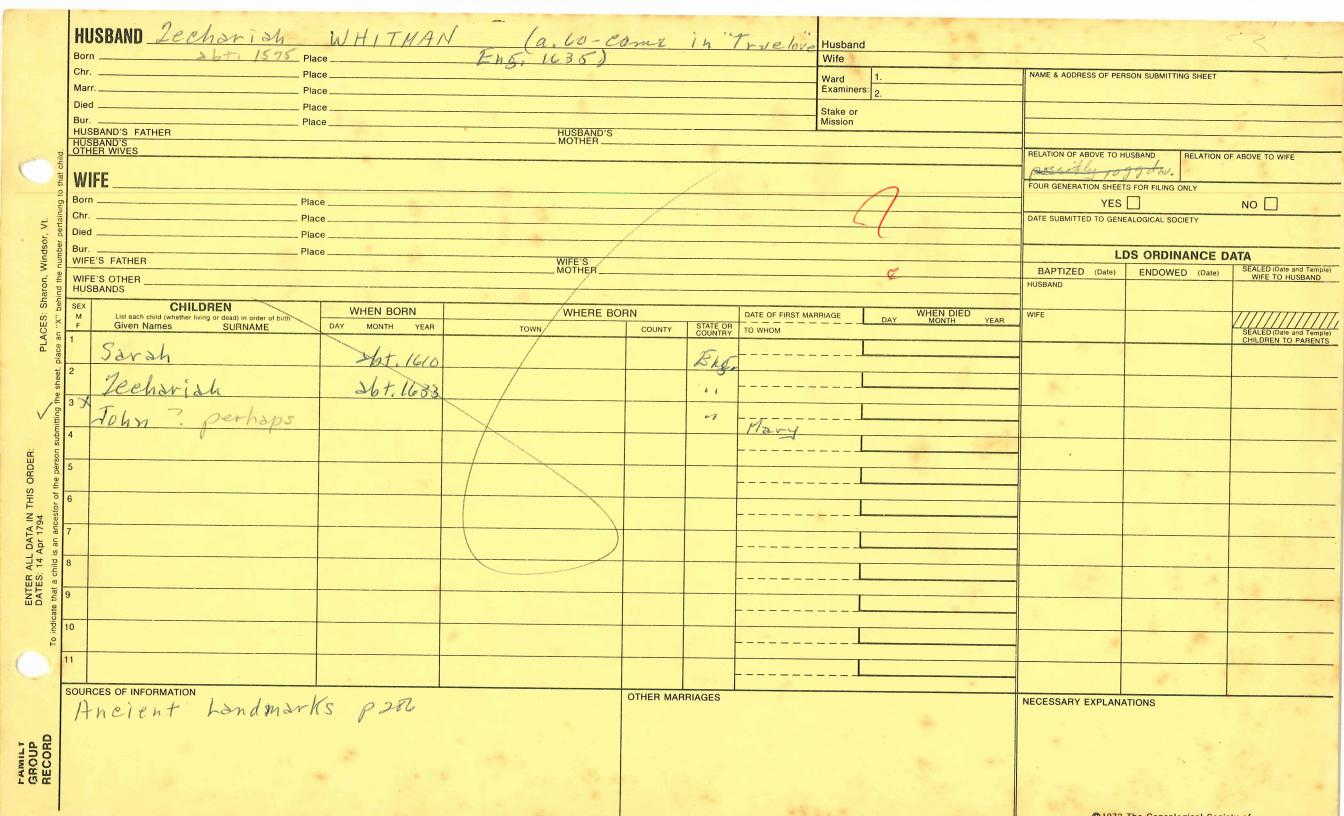 HUSBAND Zechariah WHITMAN (a. 60 - came in "Truelove
Born abt. 1575 Place Eng. 1635)
Chr. Place
Marr. Place
Died Place
Bur. Place
HUSBAND'S FATHER HUSBAND'S MOTHER
HUSBAND'S OTHER WIVES
Husband
Wife
Ward Examiners: 1.
2.
Stake or Mission
NAME & ADDRESS OF PERSON SUBMITTING SHEET
RELATION OF ABOVE TO HUSBAND RELATION OF ABOVE TO WIFE
possibly
FOUR GENERATION SHEETS FOR FILING ONLY
YES NO
DATE SUBMITTED TO GENEALOGICAL SOCIETY
WIFE
Born Place
Chr. Place
Died Place
Bur. Place
WIFE'S FATHER WIFE'S MOTHER
WIFE'S OTHER HUSBANDS
LDS ORDINANCE DATA
BAPTIZED (Date) ENDOWED (Date) SEALED (Date and Temple) WIFE TO HUSBAND
HUSBAND
WIFE
SEALED (Date and Temple) CHILDREN TO PARENTS
SEX M F
CHILDREN
List each child (whether living or dead) in order of birth
Given Names SURNAME
WHEN BORN
DAY MONTH YEAR
WHERE BORN
TOWN COUNTY STATE OR COUNTRY
DATE OF FIRST MARRIAGE
TO WHOM
WHEN DIED
DAY MONTH YEAR
1 Sarah abt. 1610 Eng.
2 Zechariah abt. 1633 "
3 x John ? perhaps " Mary
4
5
6
7
8
9
10
11
SOURCES OF INFORMATION
Ancient Landmarks p 286
OTHER MARRIAGES
NECESSARY EXPLANATIONS
PLACES: Sharon, Windsor, Vt.
ENTER ALL DATA IN THIS ORDER:
DATES: 14 Apr 1794
To indicate that a child is an ancestor of the person submitting the sheet, place an "X" behind the number pertaining to that child.
FAMILY GROUP RECORD